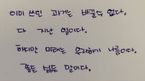 이미 쓰인 과거는 바꿀수 없다.
다 지난 일이다.
하지만 미래는 쓰기 나름이다.
좋든 싫든 말이다.